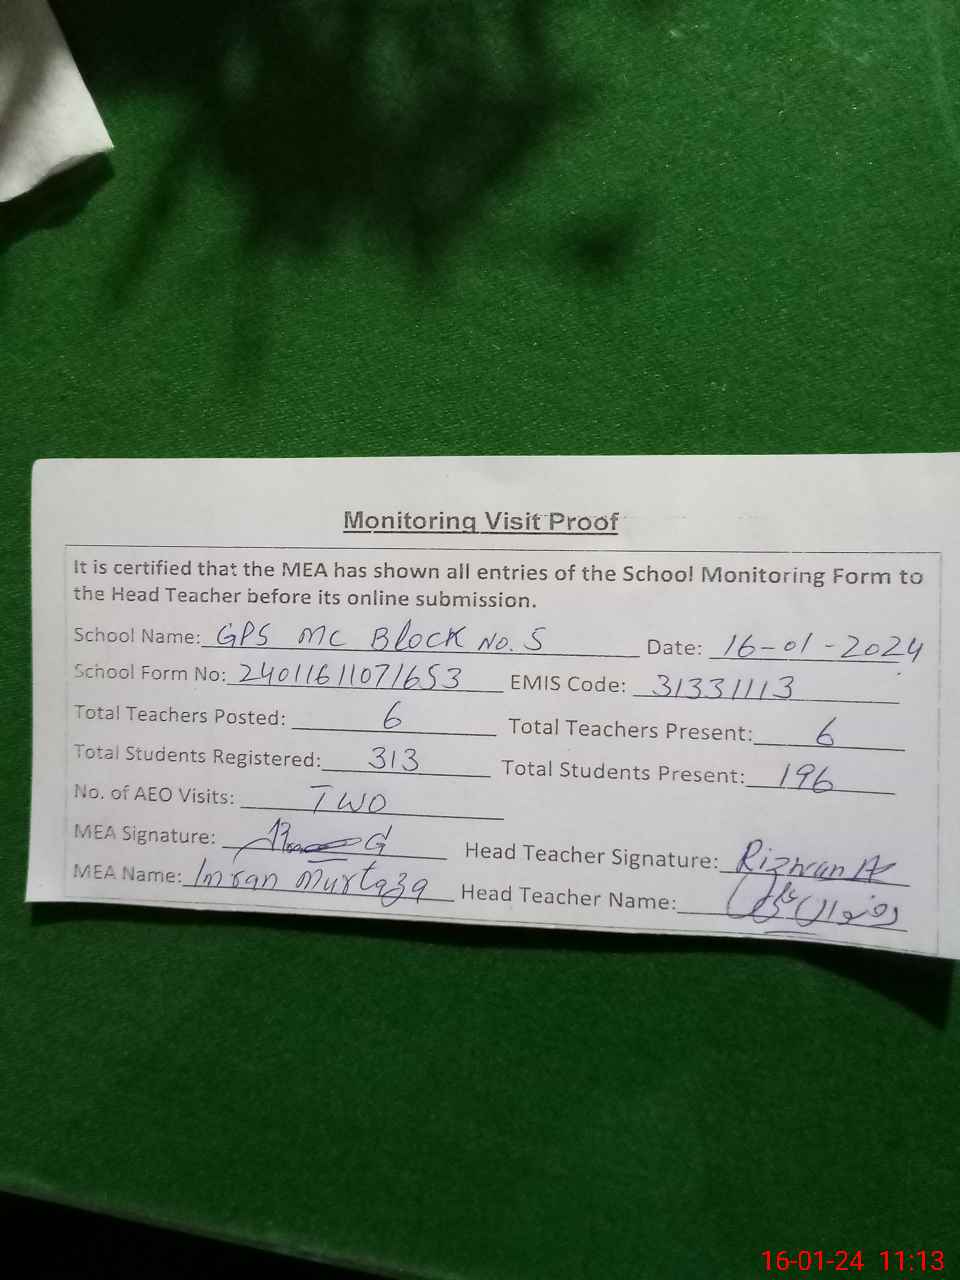 Monitoring Visit Proof
It is certified that the MEA has shown all entries of the School Monitoring Form to
the Head Teacher before its online submission.
School Name: GPS MC Block No. 5 Date: 16-01-2024
School Form No: 24011611071653 EMIS Code: 31331113
Total Teachers Posted: 6 Total Teachers Present: 6
Total Students Registered: 313 Total Students Present: 196
No. of AEO Visits: Two
MEA Signature: Head Teacher Signature: Rizwan A
MEA Name: Imran Murtaza Head Teacher Name:
16-01-24 11:13